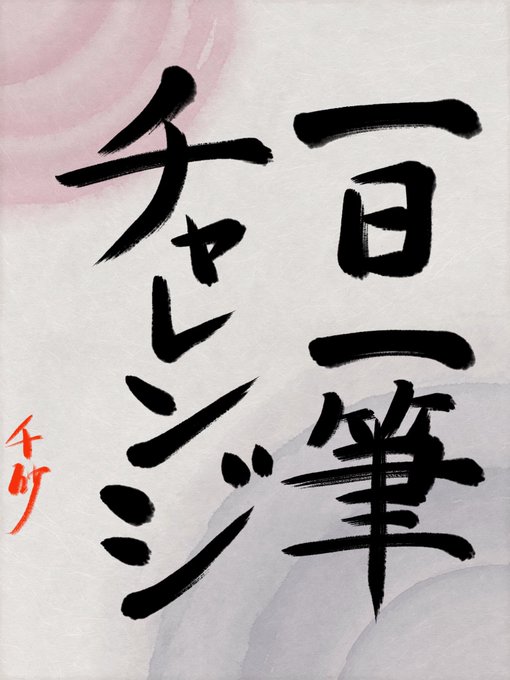 一日一筆
チャレンジ
千竹